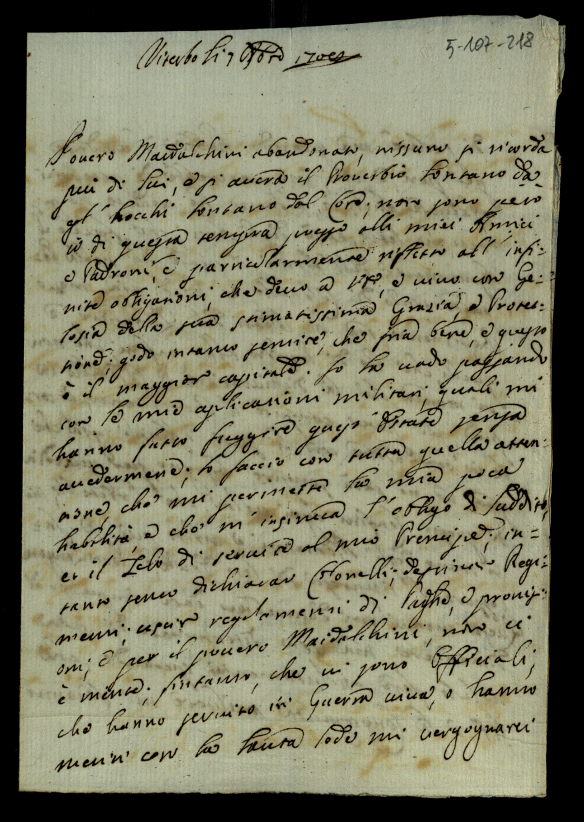 Viterbo li 7 8bre 1708
5-107-218
Povero Maidalchini abandonato, nissuno si ricorda
più di lui, e si avera il Proverbio lontano da
gl'hocchi lontano dal Core; non sono però
io di questa tempra presso alli miei Amici
e Padroni, e particolarmente rispetto all'infi-
nite obligationi, che devo a V.E., e vivo con Ge-
losia della sua stimatissima Grazia, e Protet-
tione; godo intanto sentire, che stia bene, e questo
è il maggior capitale. Io la vado passando
con le mie aplicationi militari, quali mi
hanno fatto fuggire quest'Estate senza
avedermene; lo faccio con tutta quella atten-
tione, che mi permette la mia poca
habilità, e che m'insinua l'obligo di suddito,
et il Zelo di servire al mio Prencipe; in-
tanto sento dichiarar Colonelli, Regi-
menti, uscir regolamenti di paghe, e provis-
oni, e per il povero Maidalchini, non ci
è niente; sintanto, che vi sono Officiali,
che hanno servito in Guerra viva, o hanno
con la tanta lode mi vergognarei